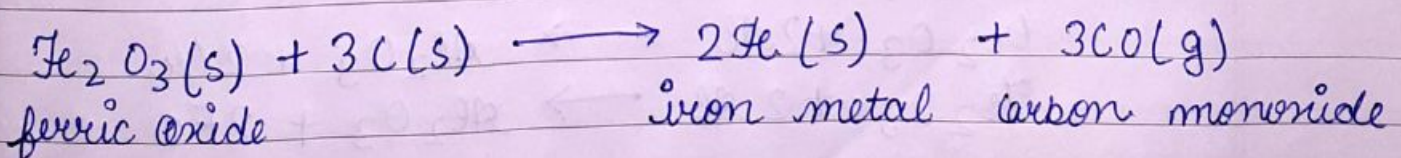 Fe₂O₃(s) + 3C(s) ⟶ 2Fe(s) + 3CO(g)
ferric oxide iron metal carbon monoxide